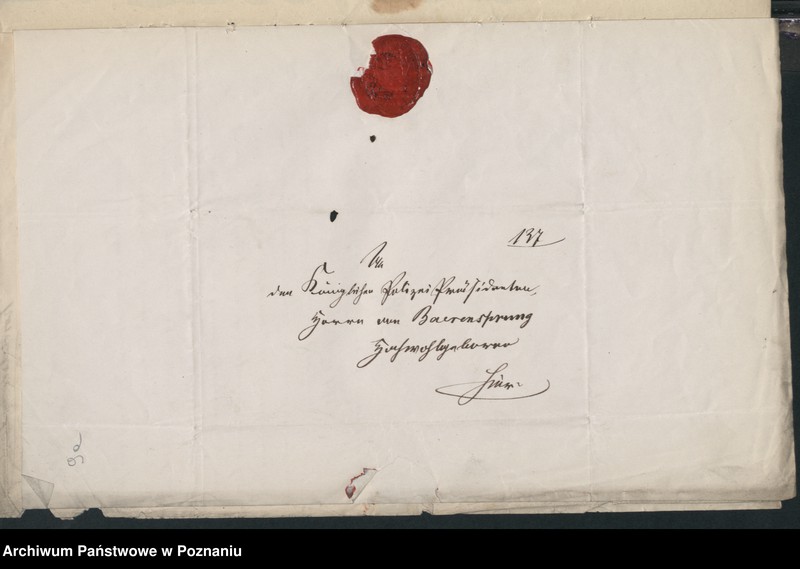 137
An
den Königlichen Polizei Präsidenten,
Herrn von Baerensprung
Hochwohlgeboren
hier.
Archiwum Państwowe w Poznaniu